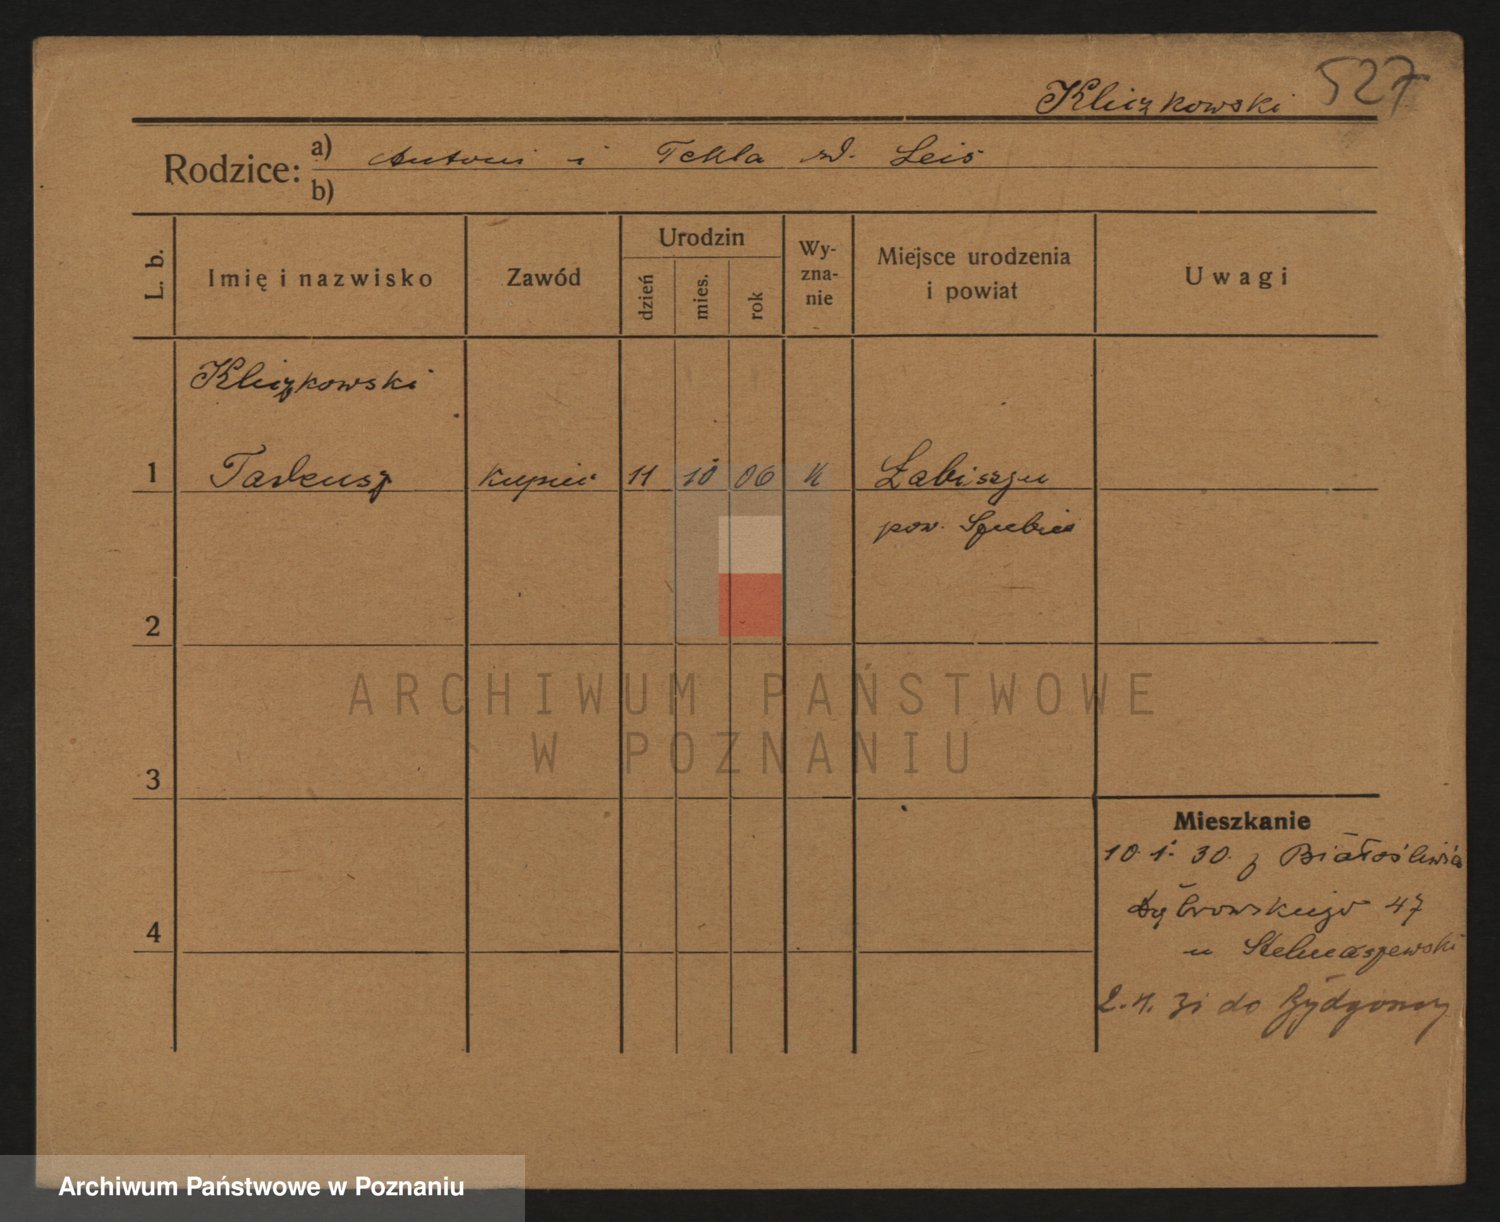 Kliczkowski 527
Rodzice: a) Antoni i Tekla zd. Leis
b)
L. b. Imię i nazwisko Zawód Urodzin dzień mies. rok Wy- zna- nie Miejsce urodzenia i powiat Uwagi
Kliczkowski
1 Tadeusz kupiec 11 10 06 K Łabiszyn
pow. Szubin
2
ARCHIWUM PAŃSTWOWE
W POZNANIU
3
Mieszkanie
10. 1. 30. z Białośliwia
4 Dąbrowskiego 47
u Stelmaszewski
2.4. 31 do Bydgoszczy
Archiwum Państwowe w Poznaniu